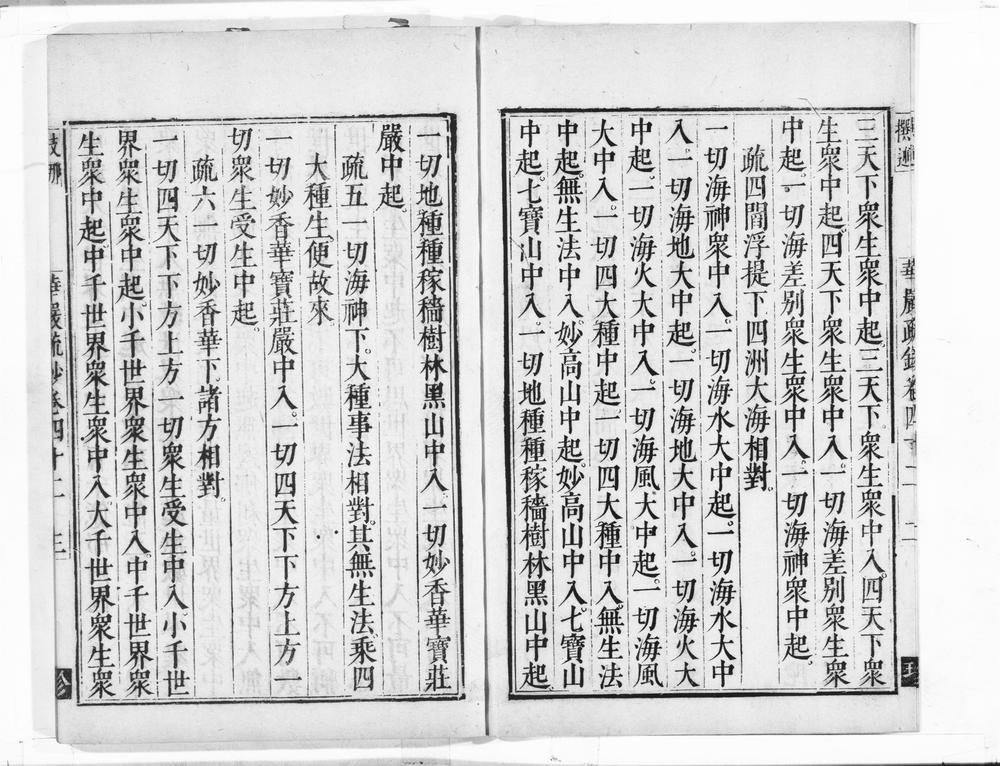 三天下衆生衆中起。三天下衆生衆中入。四天下衆
生衆中起。四天下衆生衆中入。一切海差别衆生衆
中起。一切海差别衆生衆中入。一切海神衆中起。
疏四閻浮提下四洲大海相對。
一切海神衆中入。一切海水大中起。一切海水大中
入。一切海地大中起。一切海地大中入。一切海火大
中起。一切海火大中入。一切海風大中起。一切海風
大中入。一切四大種中起。一切四大種中入。無生法
中起。無生法中入。妙高山中起。妙高山中入。七寶山
中起。七寶山中入。一切地種種稼穡樹林黑山中起
一切地種種稼穡樹林黑山中入。一切妙香華寶莊
嚴中起。
疏五一切海神下。大種事法相對。其無生法。乘四
大種生。便故來。
一切妙香華寶莊嚴中入。一切四天下下方上方一
切衆生受生中起。
疏六一切妙香華下。諸方相對。
一切四天下下方上方一切衆生受生中入。小千世
界衆生衆中起。小千世界衆生衆中入。中千世界衆
生衆中起。中千世界衆生衆中入。大千世界衆生衆
華嚴疏鈔卷四十二 三